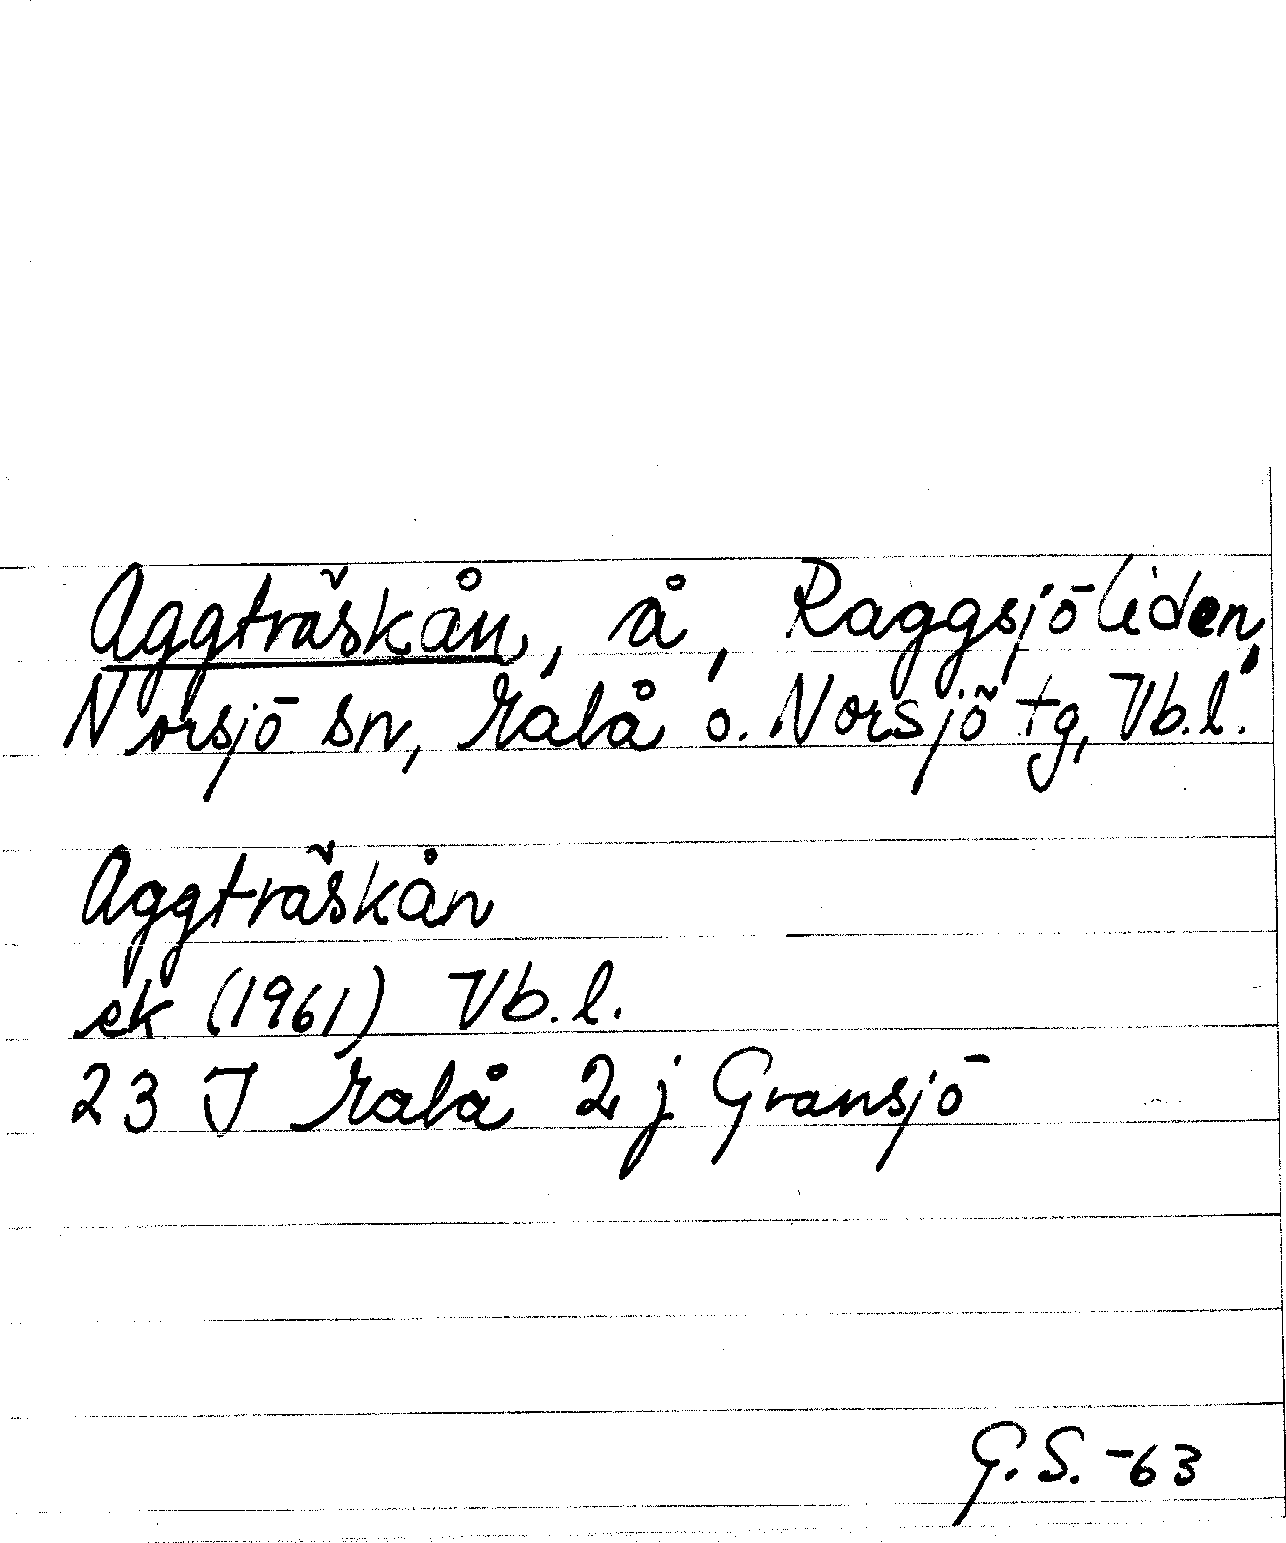 Aggträskån, å, Raggsjöliden,
Norsjö sn, Malå o. Norsjö tg, Vb.l.
Aggträskån
ek (1961) Vb.l.
23 J Malå 2 j Gransjö
G.S. -63